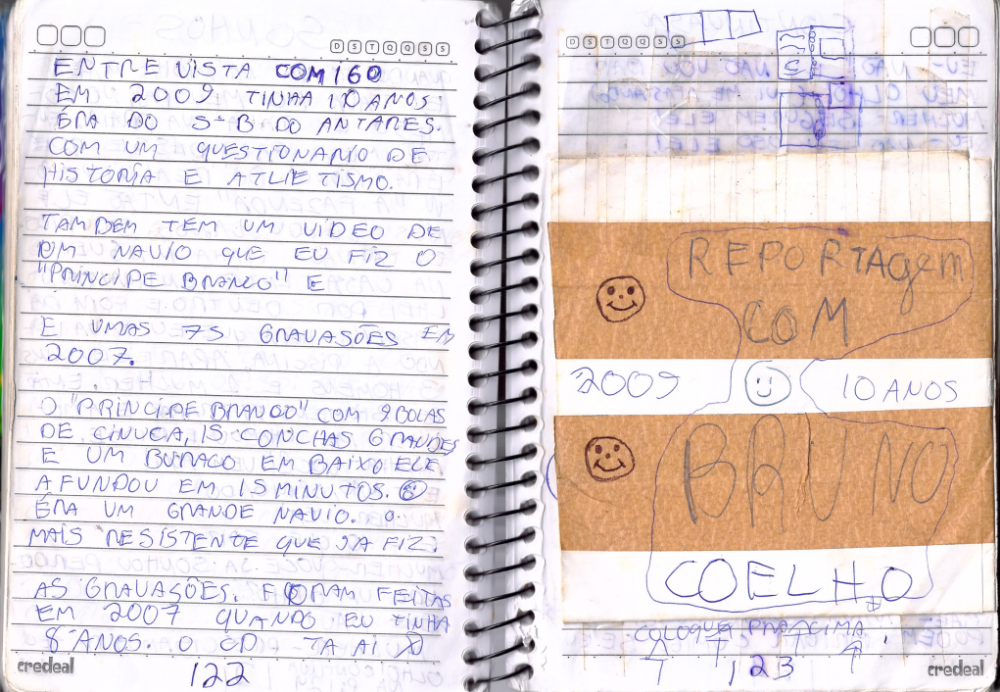 D S T Q Q S S
ENTREVISTA COM IGO
EM 2009 TINHA 10 ANOS
ÉRA DO S-B DO ANTARES.
COM UM QUESTIONARIO DE
HISTORIA E ATLETISMO.
TAMBEM TEM UM VIDEO DE
UM NAVIO QUE EU FIZ O
"PRINCIPE BRANCO" E
E UMAS 75 GRAVASÕES EM
2007.
O "PRINCIPE BRANCO" COM 9 BOLAS
DE CINUCA, 15 CONCHAS GRANDES
E UM BURACO EM BAIXO ELE
AFUNDOU EM 15 MINUTOS.
ÉRA UM GRANDE NAVIO. O
MAIS RESISTENTE QUE JÁ FIZ.
AS GRAVASÕES. FORAM FEITAS
EM 2007 QUANDO EU TINHA
8 ANOS. O CD TA AI
credeal
122
D S T Q Q S S
REPORTAgem
COM
2009 10 ANOS
BRUNO
COELHO
COLOQUE PARA CIMA.
123
credeal